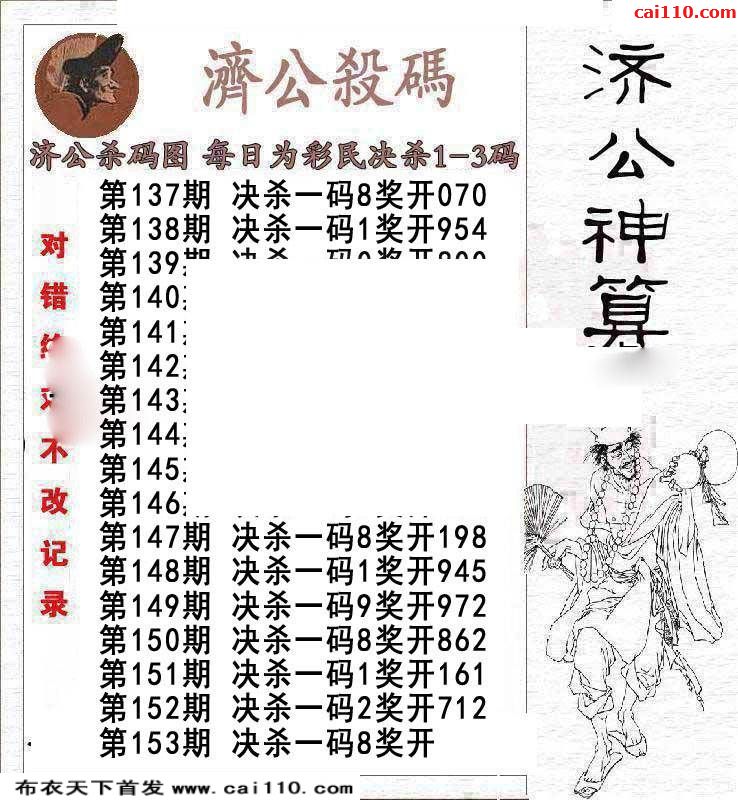 cai110.com
濟公殺碼
济公杀码图 每日为彩民决杀1-3码
第137期 决杀一码8奖开070
第138期 决杀一码1奖开954
第139
第140
第141
第142
第143
第144
第145
第146
第147期 决杀一码8奖开198
第148期 决杀一码1奖开945
第149期 决杀一码9奖开972
第150期 决杀一码8奖开862
第151期 决杀一码1奖开161
第152期 决杀一码2奖开712
第153期 决杀一码8奖开
对错
不改记录
济公神算
布衣天下首发 www.cai110.com